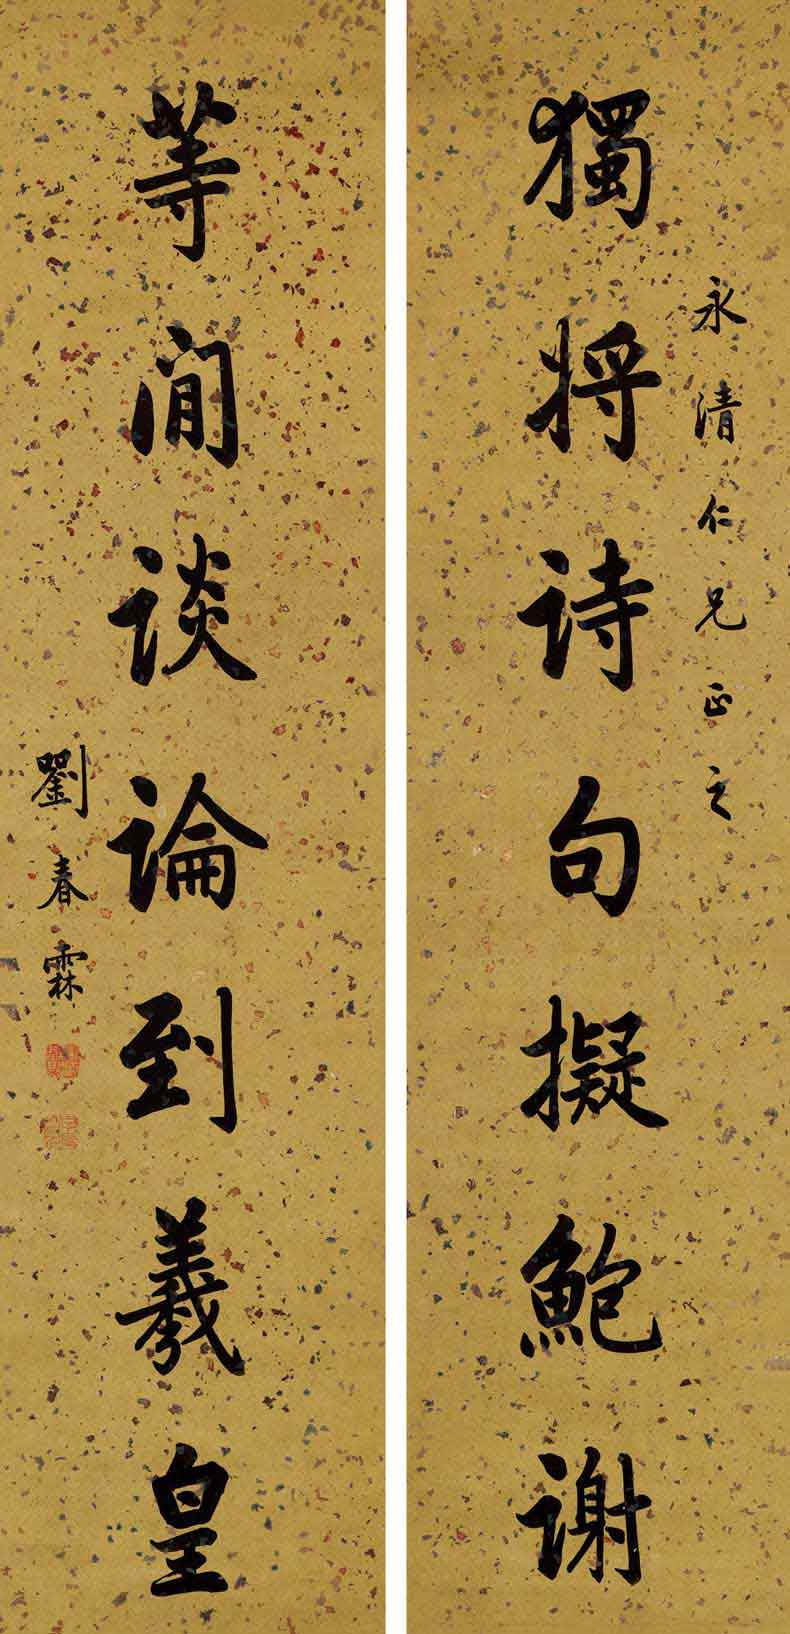 永清仁兄正之
獨將詩句擬鮑謝
等閒談論到羲皇
劉春霖